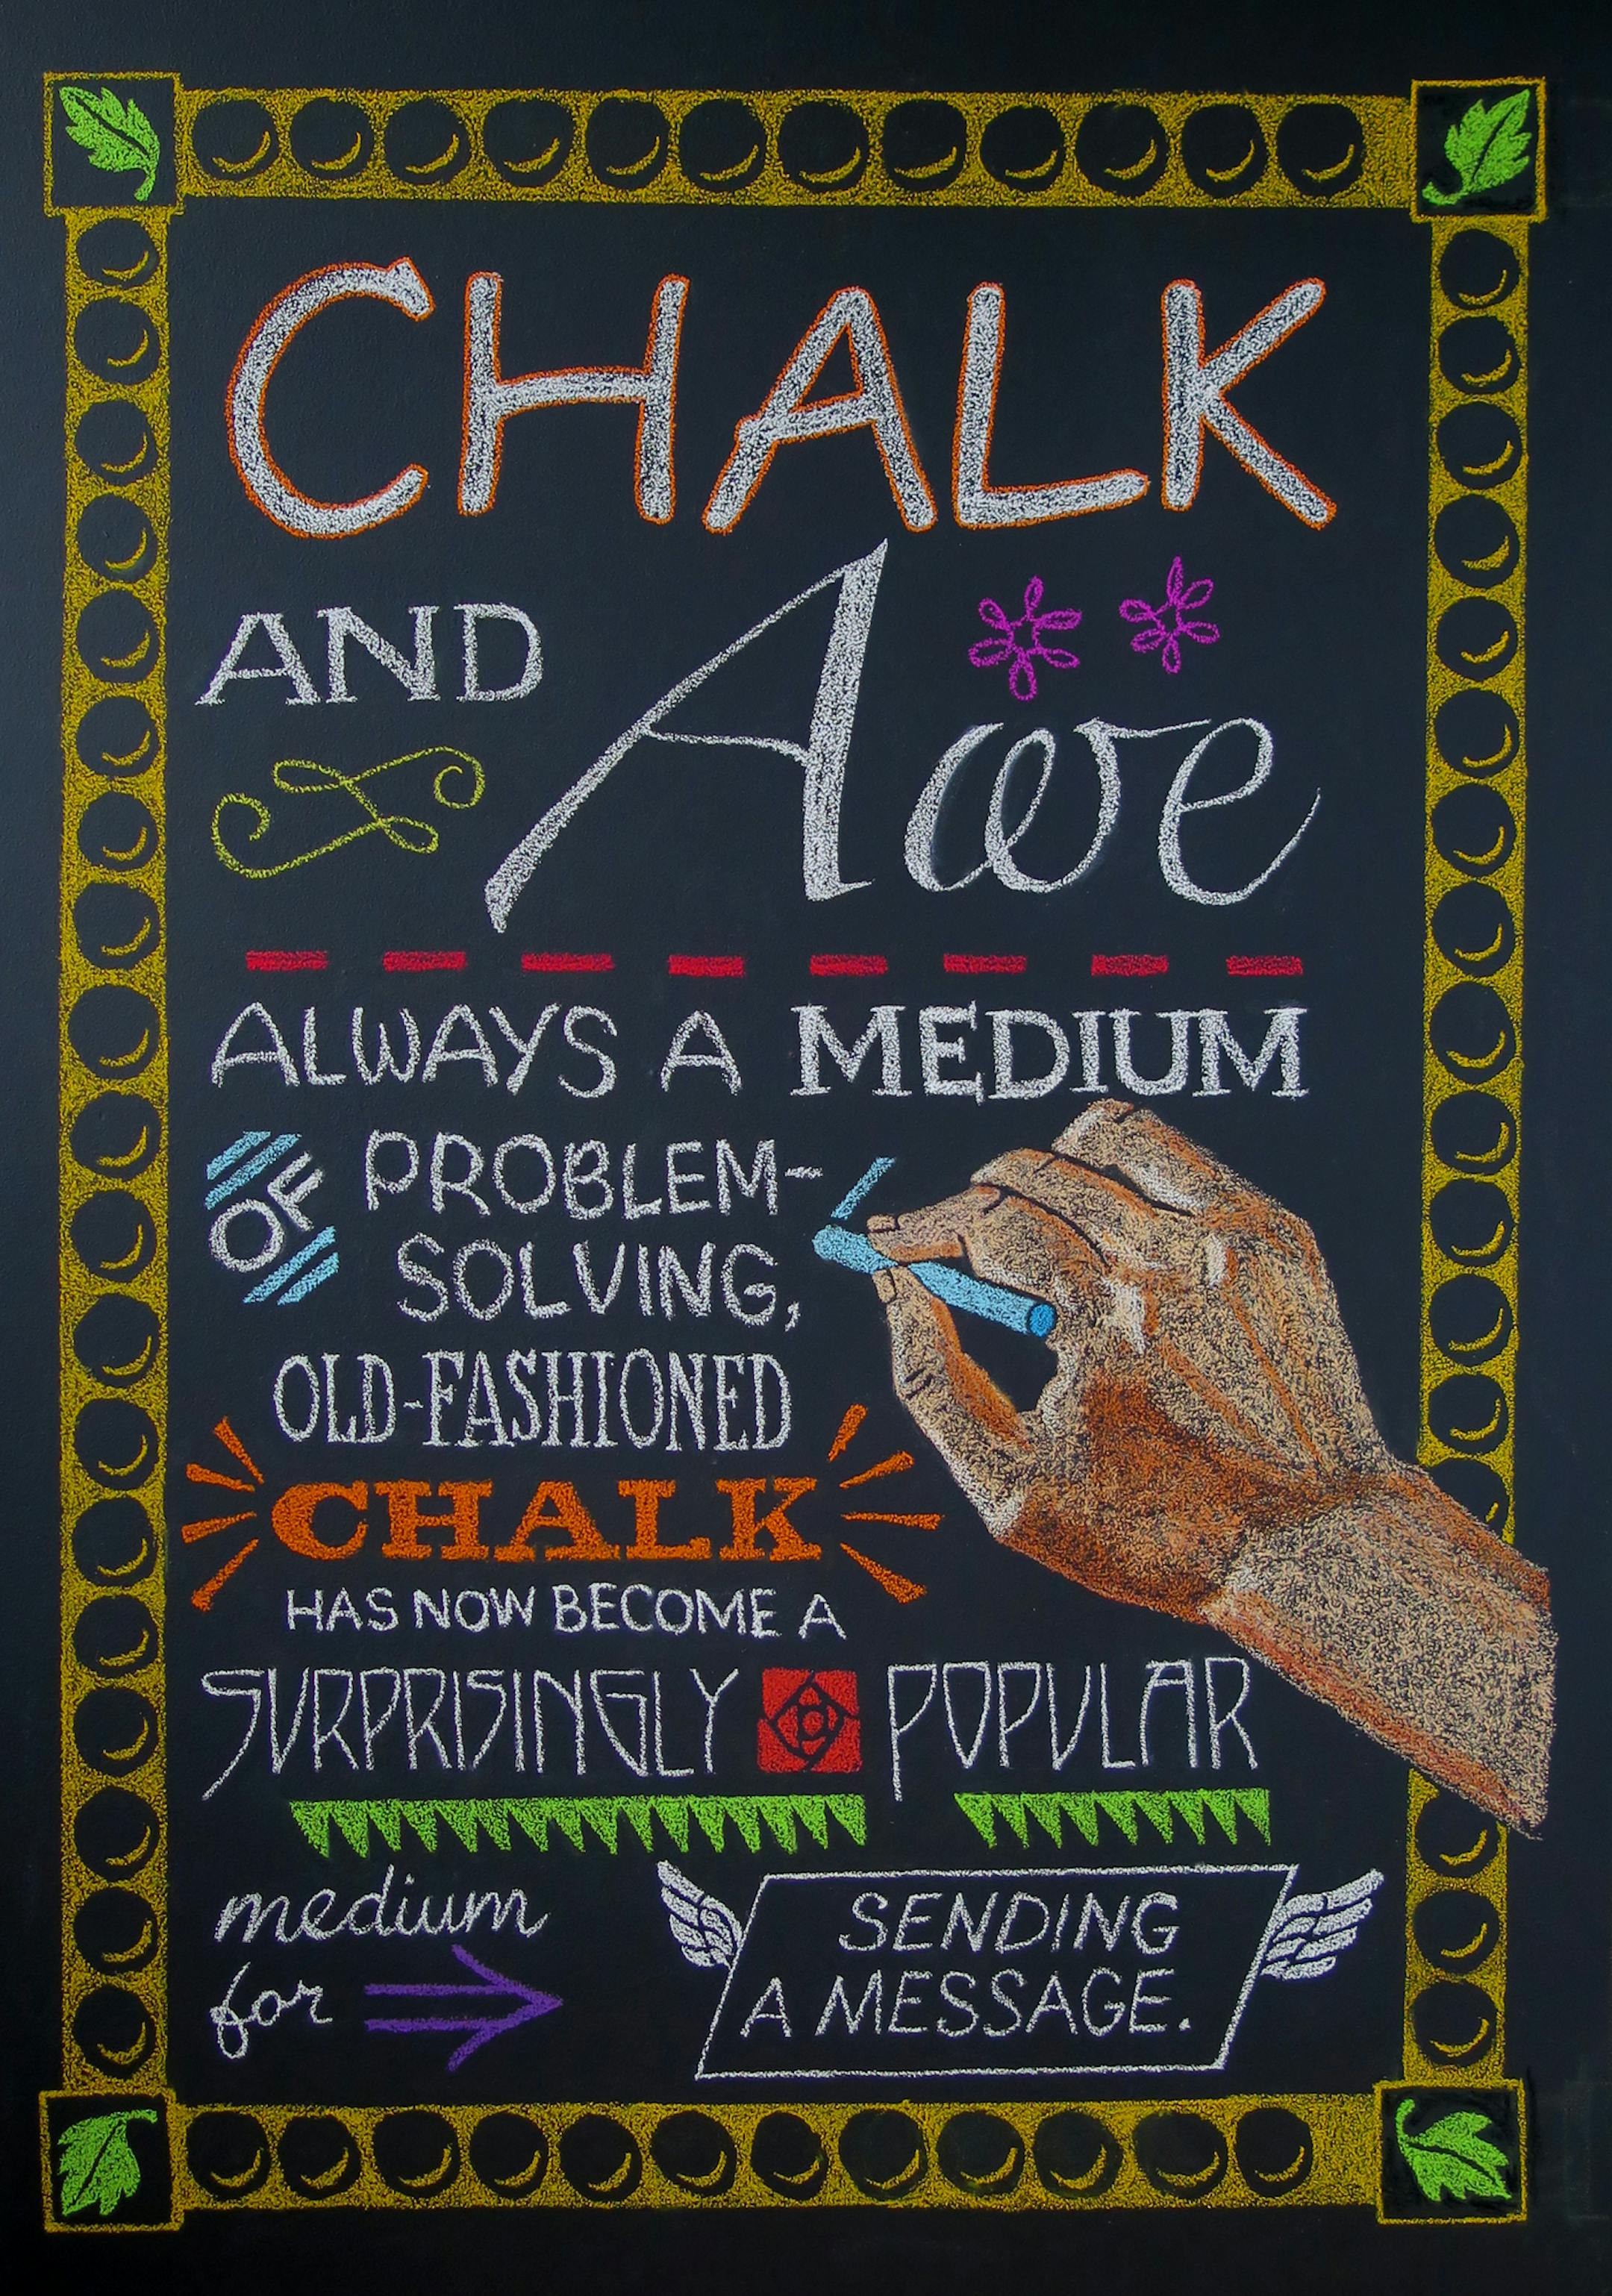 CHALK
AND Awe
ALWAYS A MEDIUM
OF PROBLEM-
SOLVING,
OLD-FASHIONED
CHALK
HAS NOW BECOME A
SURPRISINGLY POPULAR
medium
for
SENDING
A MESSAGE.